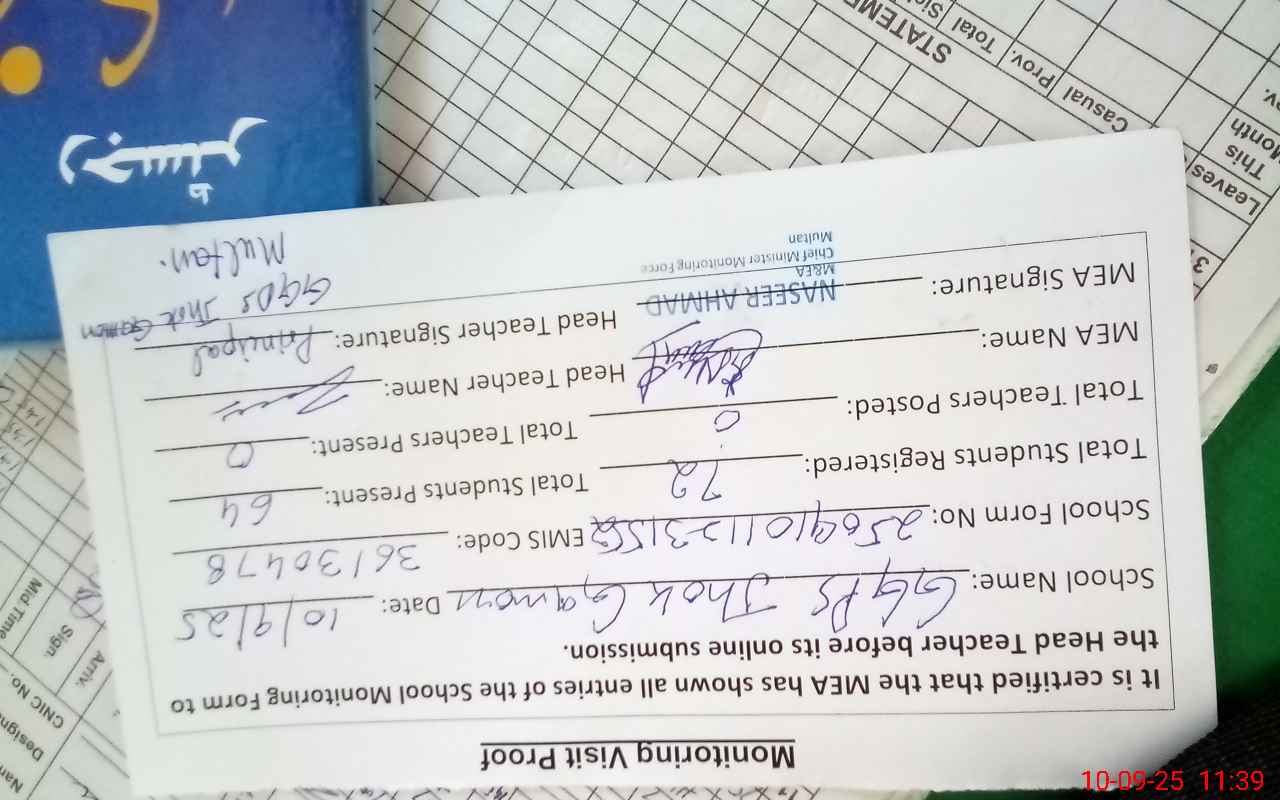 Monitoring Visit Proof
It is certified that the MEA has shown all entries of the School Monitoring Form to
the Head Teacher before its online submission.
School Name: GGPS Jhok Gamon Date: 10/9/25
School Form No: EMIS Code: 36130478
Total Students Registered: 72 Total Students Present: 64
Total Teachers Posted: 0 Total Teachers Present: 0
MEA Name: Head Teacher Name:
MEA Signature: Head Teacher Signature: Principal
NASEER AHMAD
M&EA
Chief Minister Monitoring Force
Multan
GGPS Jhok Gamon
Multan.
رجسٹر
STATEME
Casual Prov. Total Sic
Leaves
This
Month
CNIC No.
Arriv. Sign. Mid Time
10-09-25 11:39